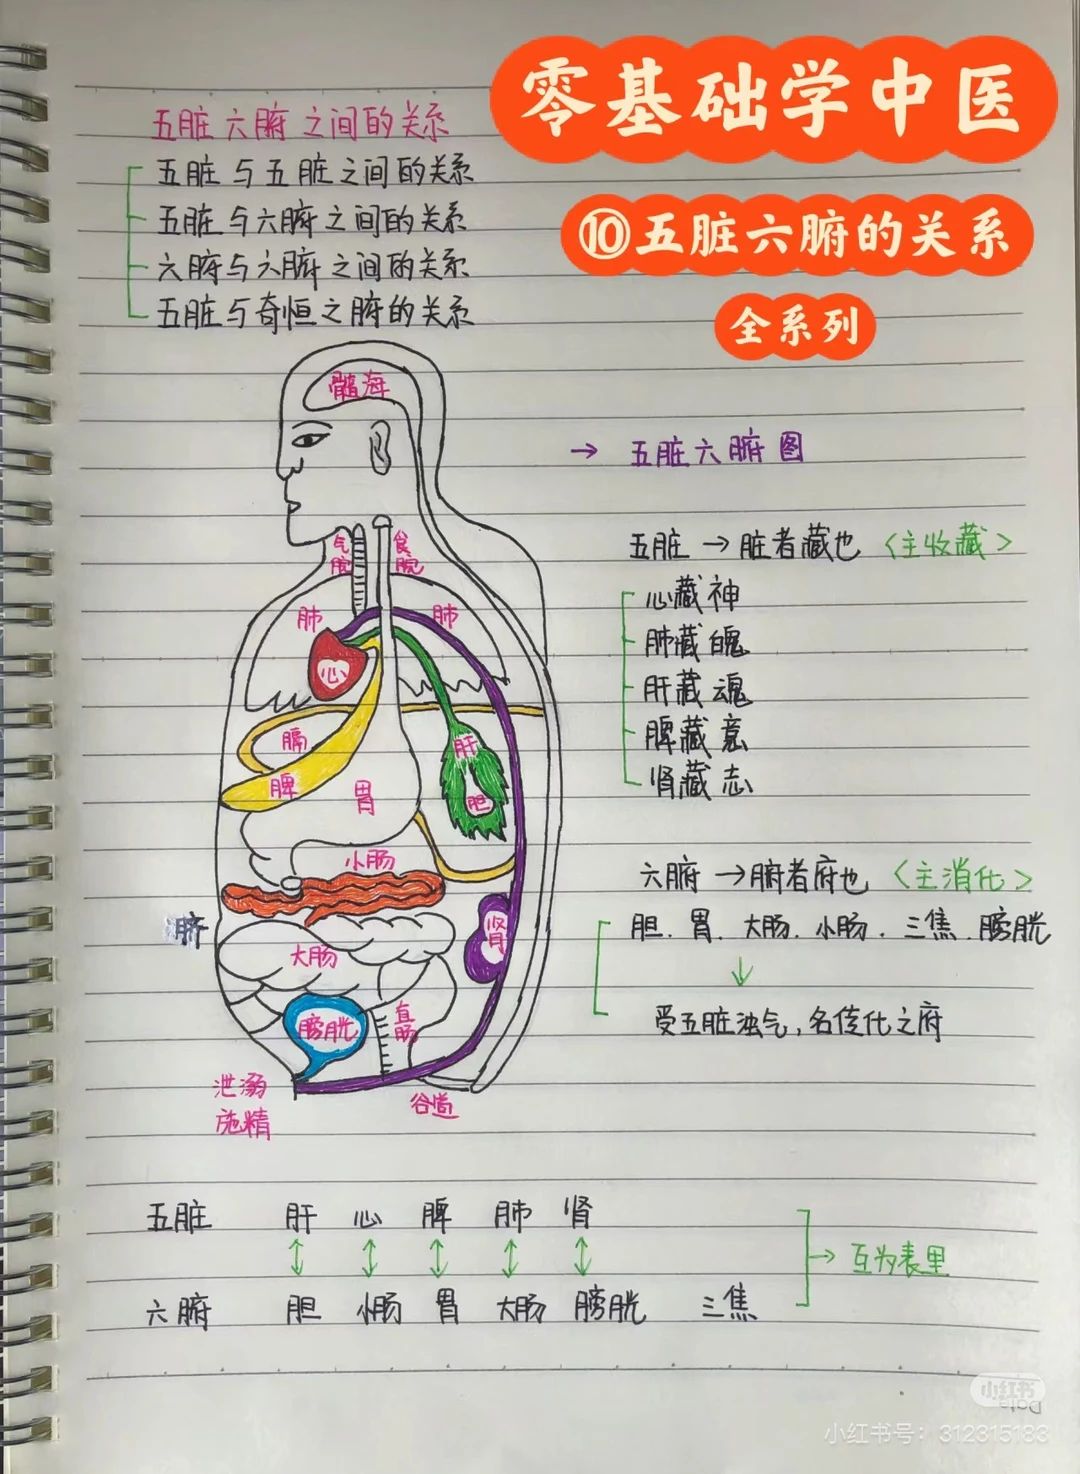 零基础学中医
⑩五脏六腑的关系
全系列
五脏六腑之间的关系
五脏与五脏之间的关系
五脏与六腑之间的关系
六腑与六腑之间的关系
五脏与奇恒之腑的关系
髓海
→ 五脏六腑图
气管
食脘
肺 肺
心
膈
脾
胃
肝
胆
小肠
脐
大肠
肾
膀胱
直肠
泄溺
施精
谷道
五脏 → 脏者藏也 <主收藏>
心藏神
肺藏魄
肝藏魂
脾藏意
肾藏志
六腑 → 腑者府也 <主消化>
胆、胃、大肠、小肠、三焦、膀胱
↓
受五脏浊气,名传化之府
五脏 肝 心 脾 肺 肾
↕ ↕ ↕ ↕ ↕
→ 互为表里
六腑 胆 小肠 胃 大肠 膀胱 三焦
小红书
Date
小红书号：312315183